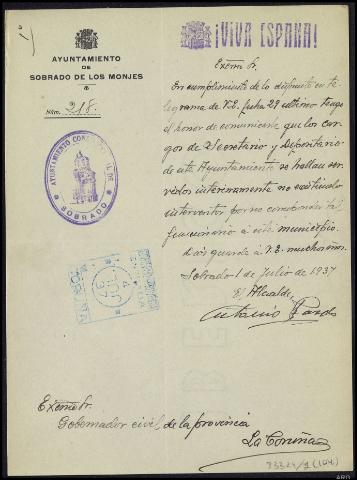 AYUNTAMIENTO
DE
SOBRADO DE LOS MONJES
Núm. 218.
¡VIVA ESPAÑA!
AYUNTAMIENTO CONSTITUCIONAL DE
SOBRADO
Excmo Sr.
En cumplimiento de lo dispuesto en te-
legrama de V.E. fecha 29 último tengo
el honor de comunicarle que los car-
gos de Secretario y Depositario
de este Ayuntamiento se hallan ser-
vidos interinamente no existiendo
interventor por no corresponder tal
funcionario a este municipio.
Dios guarde a V.E. muchos años.
Sobrado 1 de Julio de 1937
El Alcalde,
Antonio Pardo
4 JUL 37
CORUÑA
Excmo Sr.
Gobernador civil, de la provincia
La Coruña